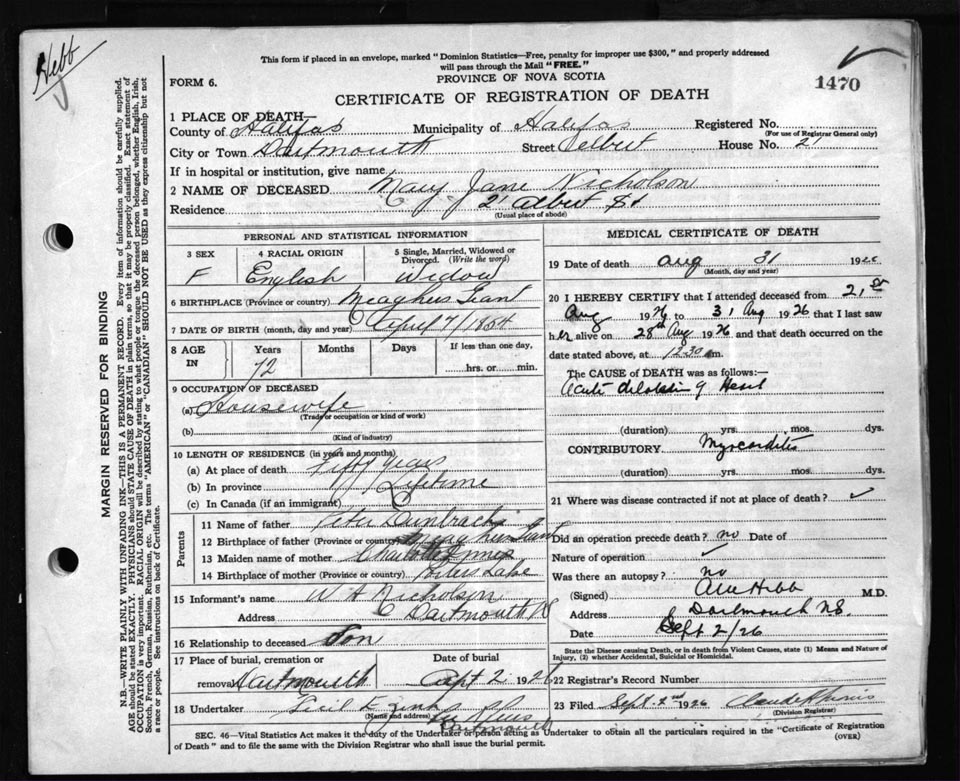 Hebb
This form if placed in an envelope, marked "Dominion Statistics—Free, penalty for improper use $300," and properly addressed
will pass through the Mail "FREE."
PROVINCE OF NOVA SCOTIA
FORM 6.
1470
CERTIFICATE OF REGISTRATION OF DEATH
1 PLACE OF DEATH—
County of Halifax Municipality of Halifax Registered No.
(For use of Registrar General only)
City or Town Dartmouth Street Albert House No. 21
If in hospital or institution, give name
2 NAME OF DECEASED Mary Jane Nicholson
Residence 21 Albert St
(Usual place of abode)
PERSONAL AND STATISTICAL INFORMATION
3 SEX 4 RACIAL ORIGIN 5 Single, Married, Widowed or
Divorced. (Write the word)
F English Widow
6 BIRTHPLACE (Province or country) Meaghers Grant
7 DATE OF BIRTH (month, day and year) April 7/1854
8 AGE IN Years Months Days If less than one day,
72 hrs. or min.
9 OCCUPATION OF DECEASED
(a) Housewife
(Trade or occupation or kind of work)
(b)
(Kind of industry)
10 LENGTH OF RESIDENCE (in years and months)
(a) At place of death Fifty years
(b) In province Lifetime
(c) In Canada (if an immigrant)
Parents
11 Name of father Peter Dunbrack
12 Birthplace of father (Province or country) Meaghers Grant
13 Maiden name of mother Charlotte Innes
14 Birthplace of mother (Province or country) Porters Lake
15 Informant's name W H Nicholson
Address Dartmouth NS
16 Relationship to deceased Son
17 Place of burial, cremation or Date of burial
removal Dartmouth Sept 2 1926
18 Undertaker Cecil E Zink
(Name and address)
Dartmouth
MEDICAL CERTIFICATE OF DEATH
19 Date of death Aug 31 1926
(Month, day and year)
20 I HEREBY CERTIFY that I attended deceased from 21st
Aug 1926 to 31 Aug 1926 that I last saw
her alive on 28th Aug 1926 and that death occurred on the
date stated above, at 12.30 m.
The CAUSE of DEATH was as follows:—
Acute dilatation of Heart
(duration) yrs. mos. dys.
CONTRIBUTORY Myocarditis
(duration) yrs. mos. dys.
21 Where was disease contracted if not at place of death? ✓
Did an operation precede death? no Date of
Nature of operation ✓
Was there an autopsy? no
(Signed) Hebb M.D.
Address Dartmouth N.S.
Date Sept 2/26
State the Disease causing Death, or in death from Violent Causes, state (1) Means and Nature of
Injury, (2) whether Accidental, Suicidal or Homicidal.
22 Registrar's Record Number
23 Filed Sept. 2nd 1926
(Division Registrar)
SEC. 46—Vital Statistics Act makes it the duty of the Undertaker or person acting as Undertaker to obtain all the particulars required in the "Certificate of Registration
of Death" and to file the same with the Division Registrar who shall issue the burial permit.
(OVER)
MARGIN RESERVED FOR BINDING
N.B.—WRITE PLAINLY WITH UNFADING INK—THIS IS A PERMANENT RECORD. Every item of information should be carefully supplied.
AGE should be stated EXACTLY. PHYSICIANS should STATE CAUSE OF DEATH in plain terms, so that it may be properly classified. Exact statement of
OCCUPATION is very important. RACIAL ORIGIN will be described by stating to what people or tongue the deceased person belonged, whether English, Irish,
Scotch, French, German, Russian, Ruthenian, etc. The terms "AMERICAN" or "CANADIAN" SHOULD NOT BE USED as they express citizenship but not
a race or people. See instructions on back of Certificate.